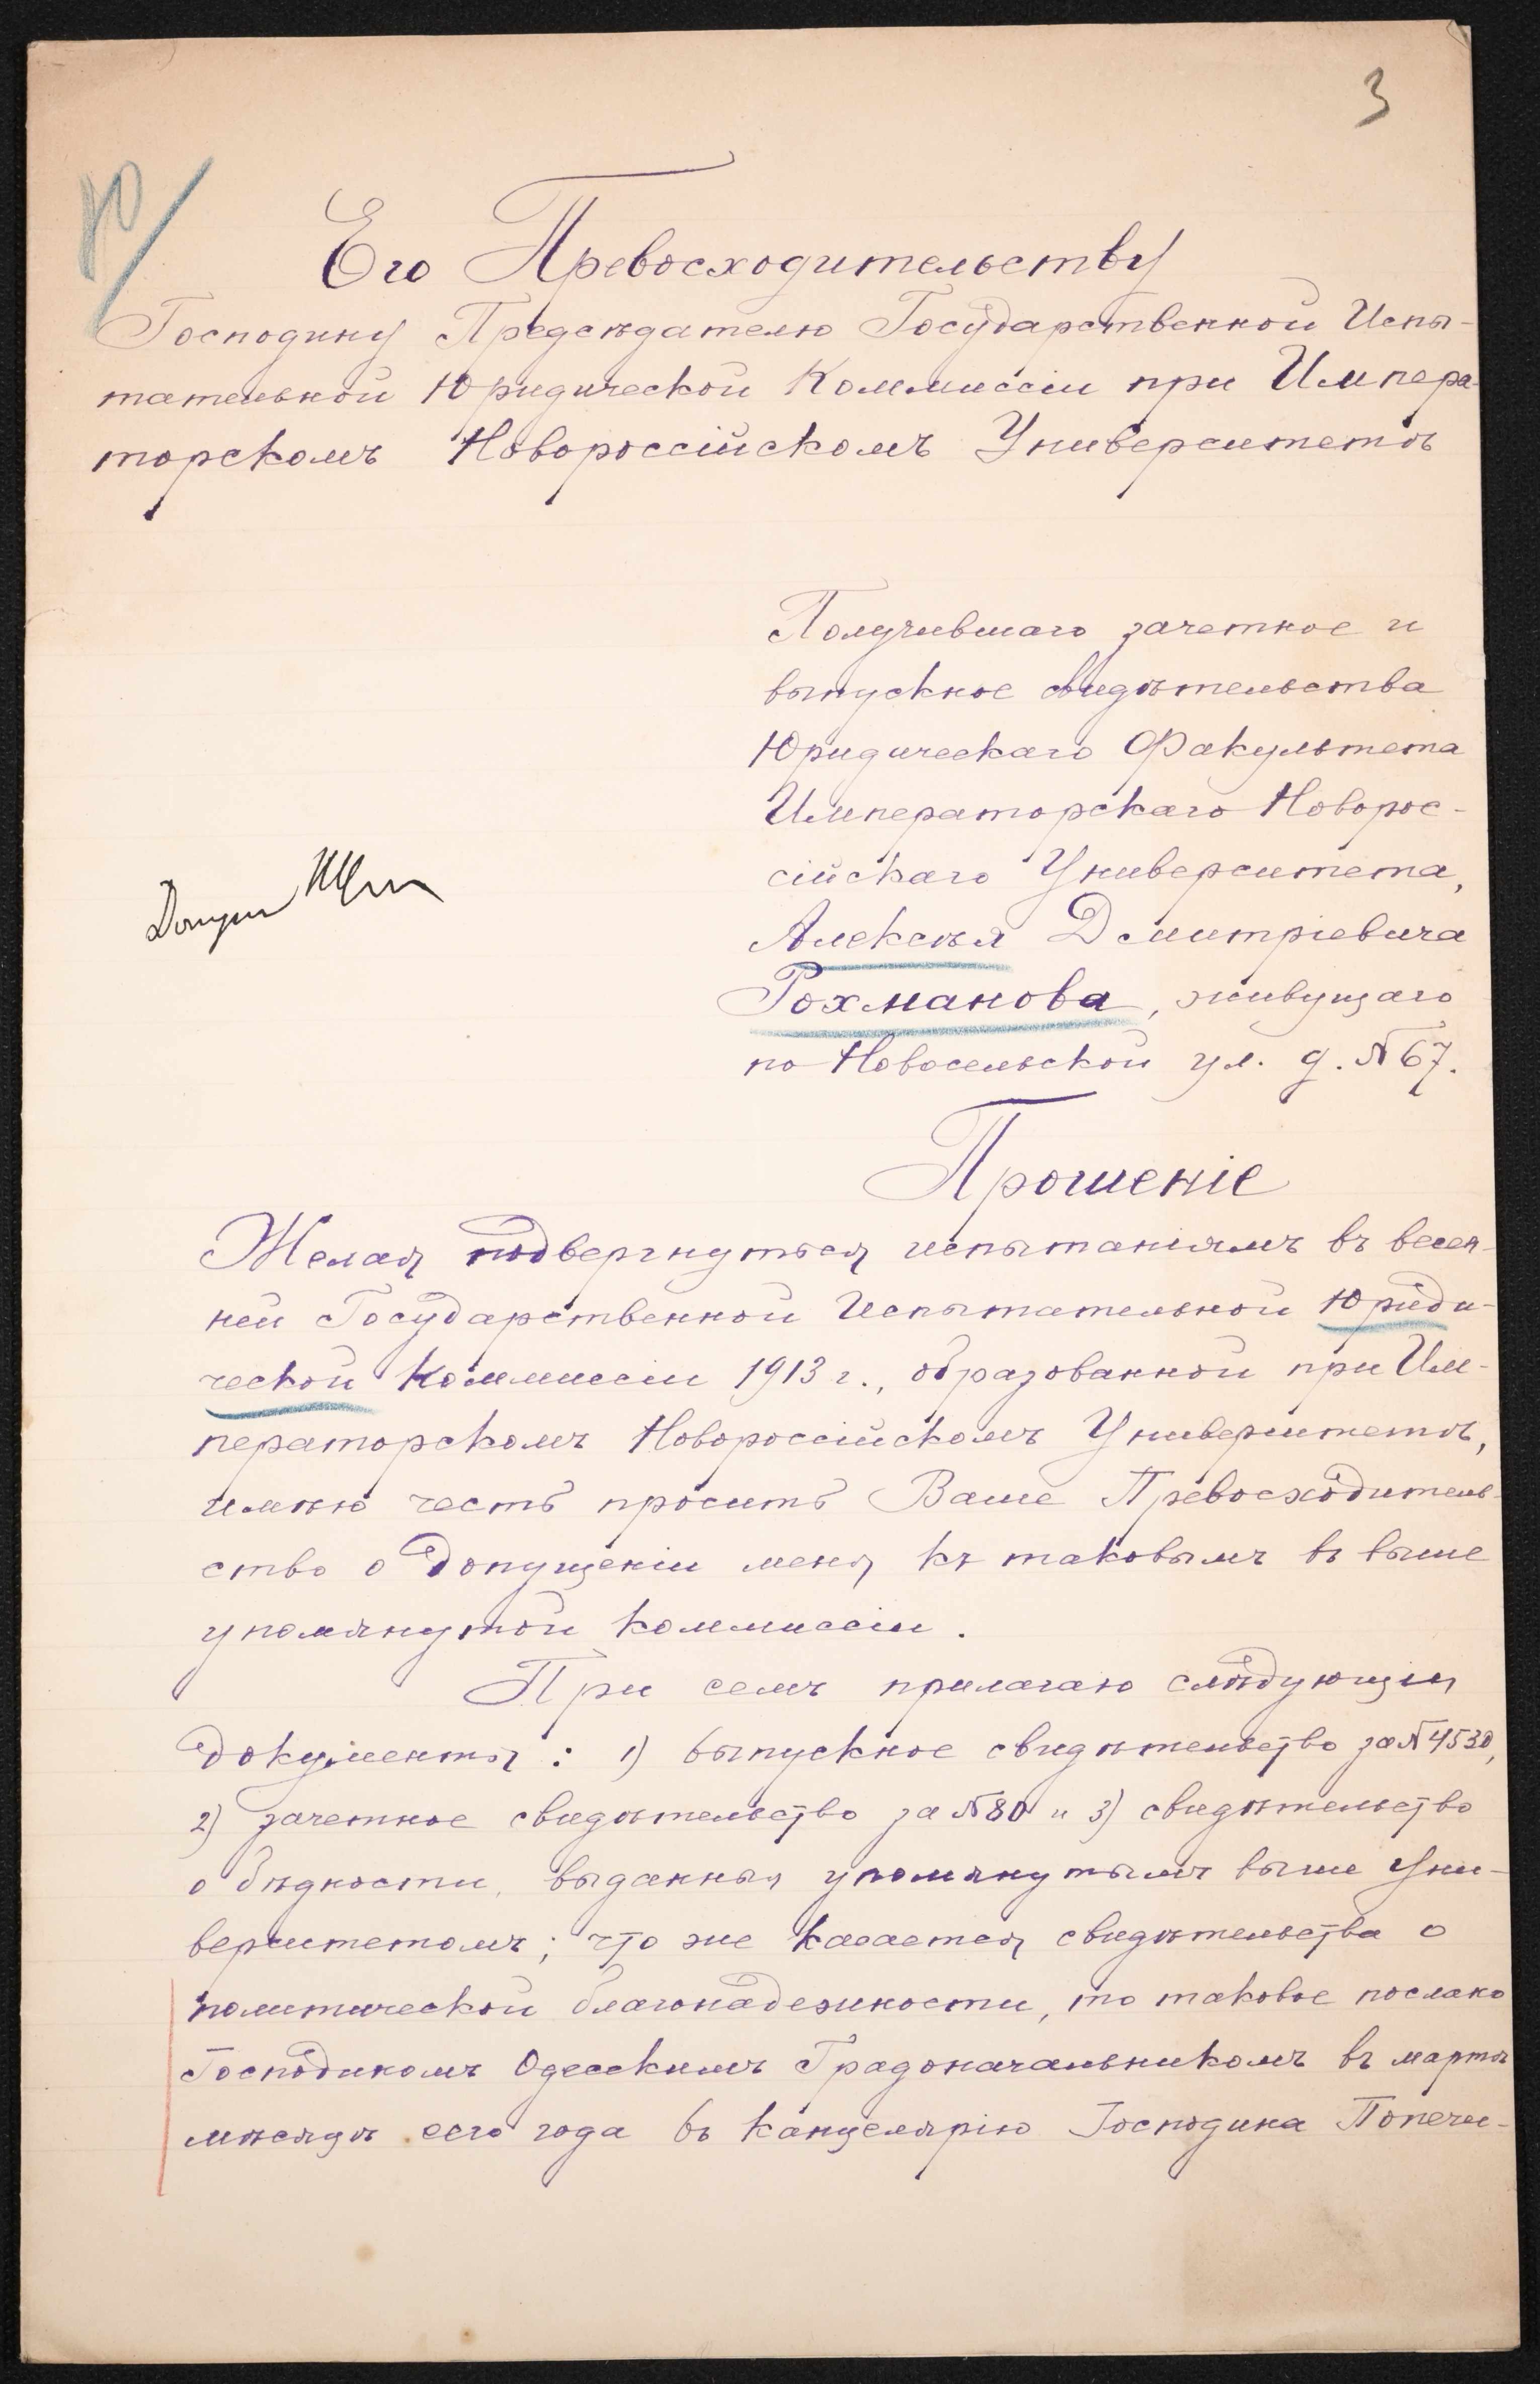 3
Его Превосходительству
Господину Предсѣдателю Государственной Испы-
тательной Юридической Коммиссіи при Импера-
торскомъ Новороссійскомъ Университетѣ
Получившаго зачетное и
выпускное свидѣтельства
Юридическаго Факультета
Императорскаго Новорос-
сійскаго Университета,
Алексѣя Дмитріевича
Рохманова, живущаго
по Новосельской ул. д. № 67.
Прошеніе
Желая подвергнуться испытаніямъ въ весен-
ней Государственной Испытательной Юриди-
ческой Коммиссіи 1913 г., образованной при Им-
ператорскомъ Новороссійскомъ Университетѣ,
имѣю честь просить Ваше Превосходитель-
ство о допущеніи меня къ таковымъ въ выше
упомянутой коммиссіи.
При семъ прилагаю слѣдующіи
документы: 1) выпускное свидѣтельство за № 4530,
2) зачетное свидѣтельство за № 80 и 3) свидѣтельство
о бѣдности, выданныя упомянутымъ выше Уни-
верситетомъ; что же касается свидѣтельства о
политической благонадежности, то таковое послано
Господиномъ Одесскимъ Градоначальникомъ въ мартѣ
мѣсяцѣ сего года въ Канцелярію Господина Попечи-